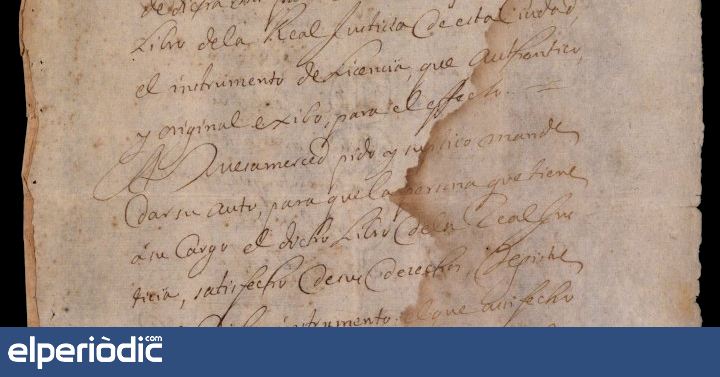 Libro dela Real Justicia de esta Ciudad,
el instrumento de Licencia, que Authentico,
y original exibo, para el effecto.
A Vuesamerced pido y suplico mande
dar su auto, para que la persona que tiene
á su cargo el dicho Libro de la Real Jus-
ticia, satisfecho de sus derechos,
instrumento, el que assi fecho
elperiòdic.com